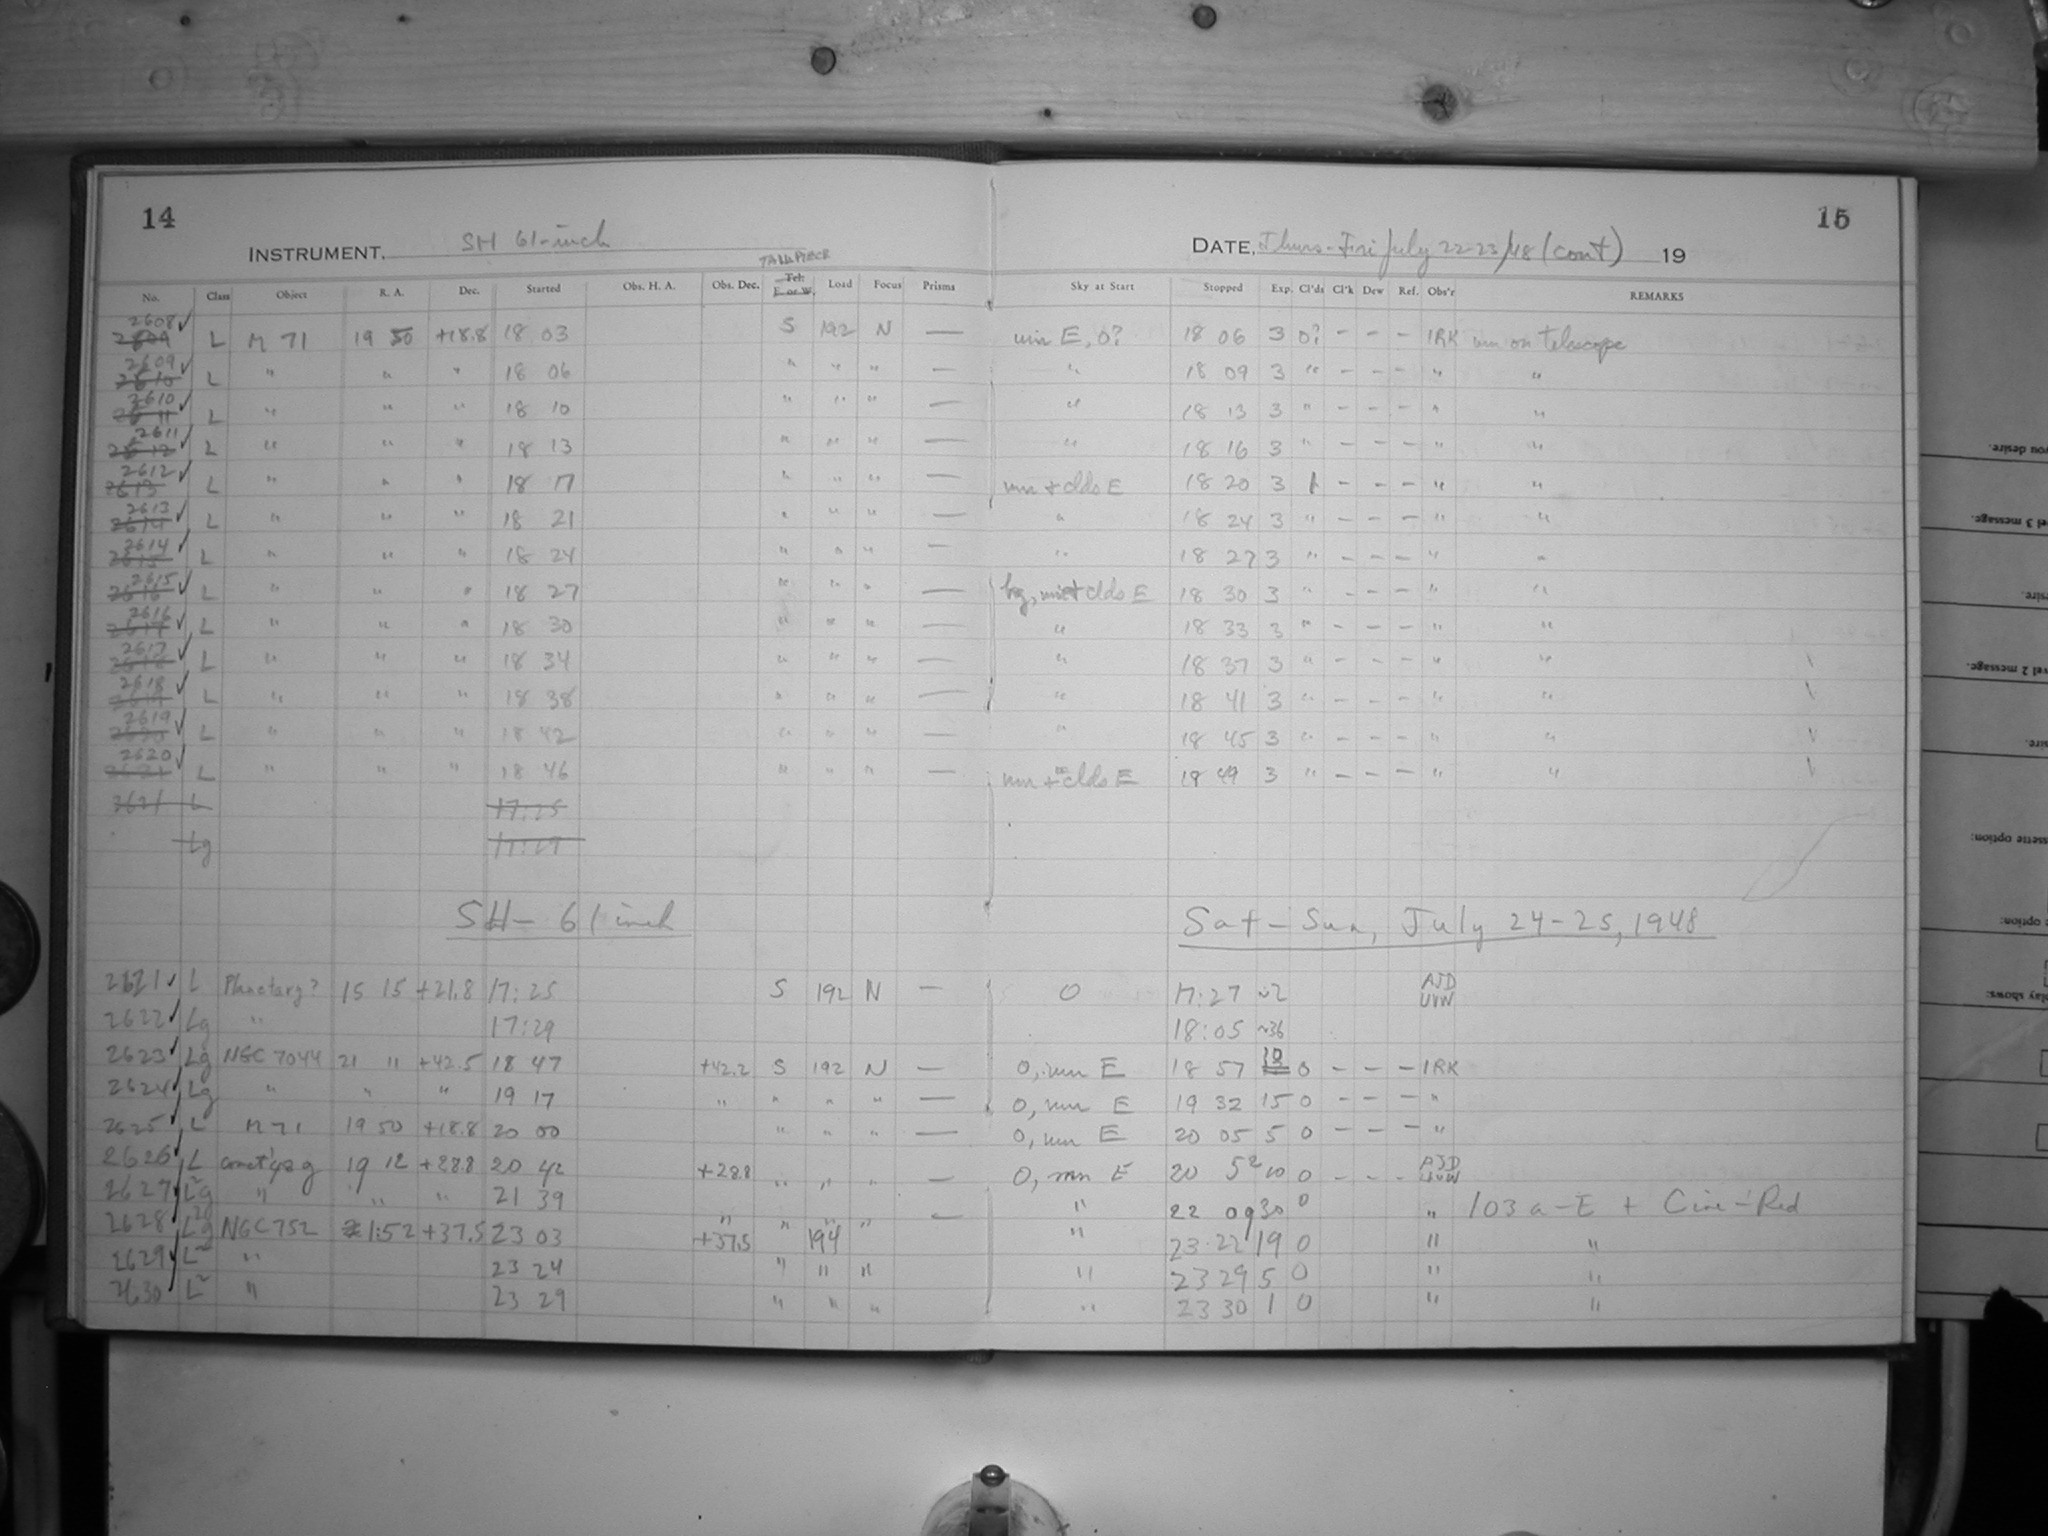 14
15
INSTRUMENT, SH 61-inch
DATE, Thurs-Fri July 22-23/48 (cont) 19
TAILPIECE
No. Class Object R. A. Dec. Started Obs. H. A. Obs. Dec. Tel: E. or W. Load Focus Prisms Sky at Start Stopped Exp. Cl'ds Cl'k Dew Ref. Obs'r REMARKS
2608 L M 71 19 50 +18.8 18 03 S 192 N — E, 0? 18 06 3 0? - - - IRK on telescope
2609 L " " " 18 06 " " " — " 18 09 3 " - - - " "
2610 L " " " 18 10 " " " — " 18 13 3 " - - - " "
2611 L " " " 18 13 " " " — " 18 16 3 " - - - " "
2612 L " " " 18 17 " " " — + clds E 18 20 3 1 - - - " "
2613 L " " " 18 21 " " " — " 18 24 3 " - - - " "
2614 L " " " 18 24 " " " — " 18 27 3 " - - - " "
2615 L " " " 18 27 " " " — clds E 18 30 3 " - - - " "
2616 L " " " 18 30 " " " — " 18 33 3 " - - - " "
2617 L " " " 18 34 " " " — " 18 37 3 " - - - " "
2618 L " " " 18 38 " " " — " 18 41 3 " - - - " "
2619 L " " " 18 42 " " " — " 18 45 3 " - - - " "
2620 L " " " 18 46 " " " — + clds E 18 49 3 " - - - " "
2621 L 17:25
Lg 17:29
SH- 61 inch
Sat - Sun, July 24-25, 1948
2621 L Planetary? 15 15 +21.8 17:25 S 192 N — 0 17:27 ~2 AJD UVW
2622 Lg " 17:29 18:05 ~36
2623 Lg NGC 7044 21 11 +42.5 18 47 +42.2 S 192 N — 0, E 18 57 10 0 - - - IRK
2624 Lg " " " 19 17 " " " " — 0, E 19 32 15 0 - - - "
2625 L M 71 19 50 +18.8 20 00 " " " — 0, E 20 05 5 0 - - - "
2626 L comet '48 g 19 12 +28.8 20 42 +28.8 " " " — 0, E 20 52 10 0 - - - AJD UVW
2627 L²g " " " 21 39 " " " " — " 22 09 30 0 " 103 a-E + Cine-Red
2628 L²g NGC 752 1:52 +37.5 23 03 +37.5 " 194 " " 23 22 19 0 " "
2629 L² " 23 24 " " " " 23 29 5 0 " "
2630 L² " 23 29 " " " " 23 30 1 0 " "
you desire.
vel 3 message.
vel 2 message.
cassette option:
option:
play shows: